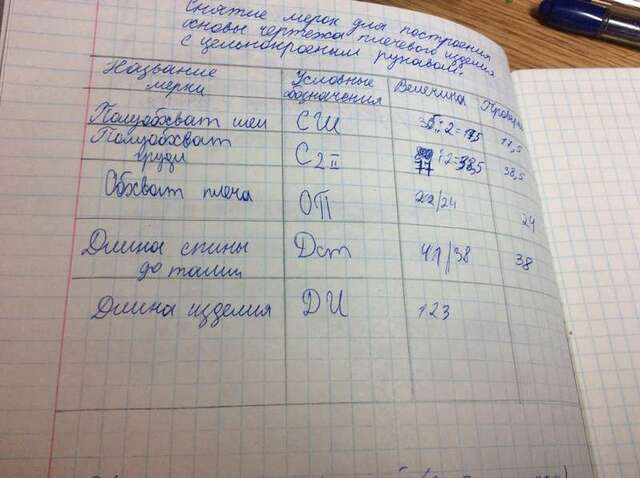 Снятие мерок для построения
основы чертежа плечевого изделия
с цельнокроеным рукавом:
Название мерки Условные обозначения Величина Проверка
Полуобхват шеи СШ 35:2=17,5 17,5
Полуобхват груди СгII 77:2=38,5 38,5
Обхват плеча ОП 22/24 24
Длина спины до талии Дст 41/38 38
Длина изделия ДИ 123